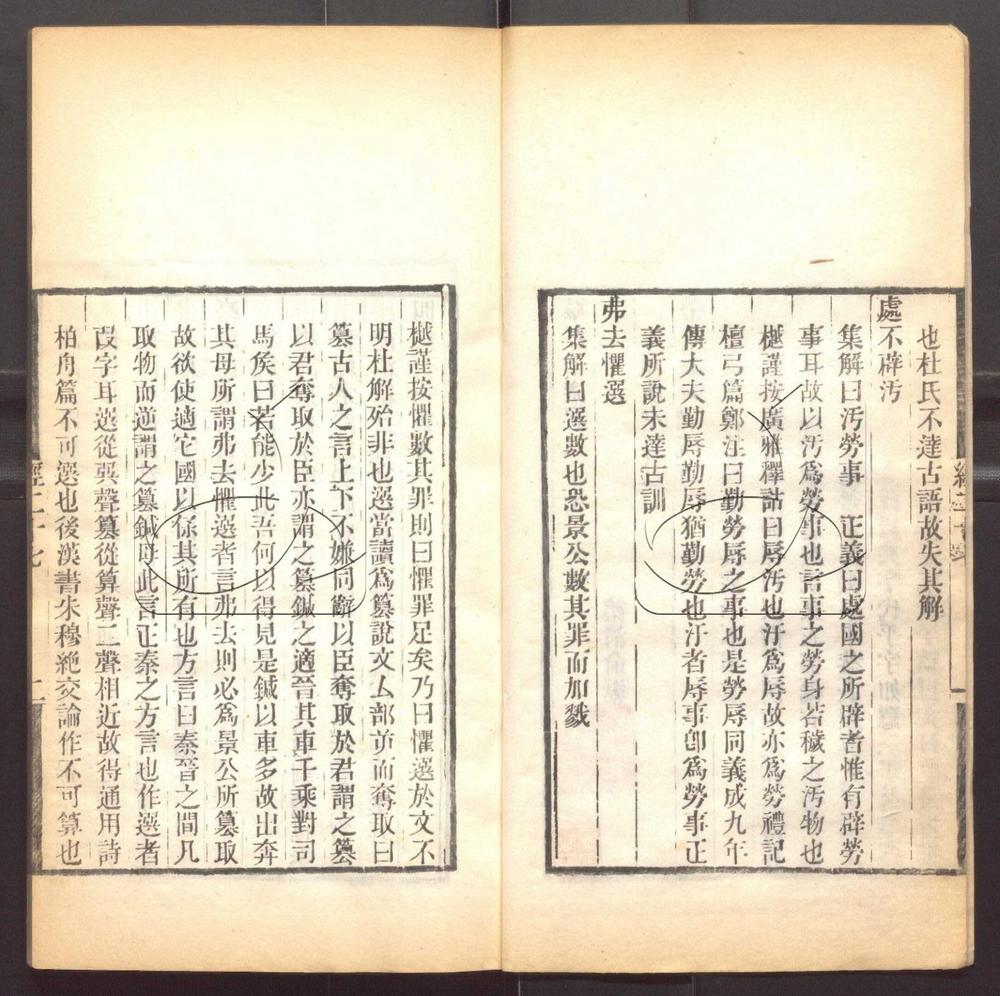 也杜氏不達古語故失其解
處不辟汚
集解曰汚勞事　正義曰處國之所辟者惟有辟勞
事耳故以汚爲勞事也言事之勞身若穢之汚物也
樾謹按廣雅釋詁曰辱汚也汙爲辱故亦爲勞禮記
檀弓篇鄭注曰勤勞辱之事也是勞辱同義成九年
傳大夫勤辱勤辱猶勤勞也汙者辱事卽爲勞事正
義所說未達古訓
弗去懼選
集解曰選數也恐景公數其罪而加戮
樾謹按懼數其罪則曰懼罪足矣乃曰懼選於文不
明杜解殆非也選當讀爲篡說文厶部屰而奪取曰
篡古人之言上下不嫌同辭以臣奪取於君謂之篡
以君奪取於臣亦謂之篡鍼之適晉其車千乘對司
馬侯曰若能少此吾何以得見是鍼以車多故出奔
其母所謂弗去懼選者言弗去則必爲景公所篡取
故欲使適它國以保其所有也方言曰秦晉之間凡
取物而逆謂之篡鍼母此言正秦之方言也作選者
叚字耳選從巽聲篡從算聲二聲相近故得通用詩
柏舟篇不可選也後漢書朱穆絶交論作不可算也
經二十七
二